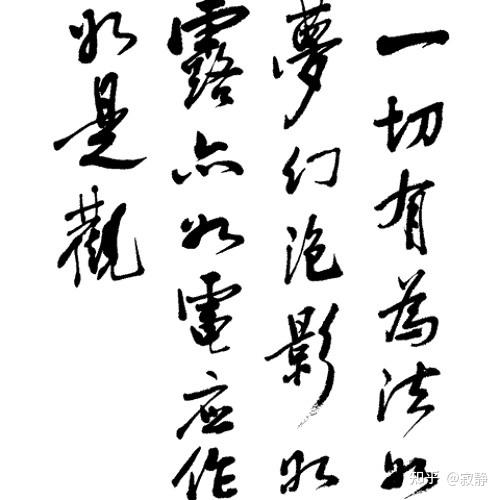 一切有為法如
夢幻泡影如
露亦如電应作
如是觀
知乎 @寂静